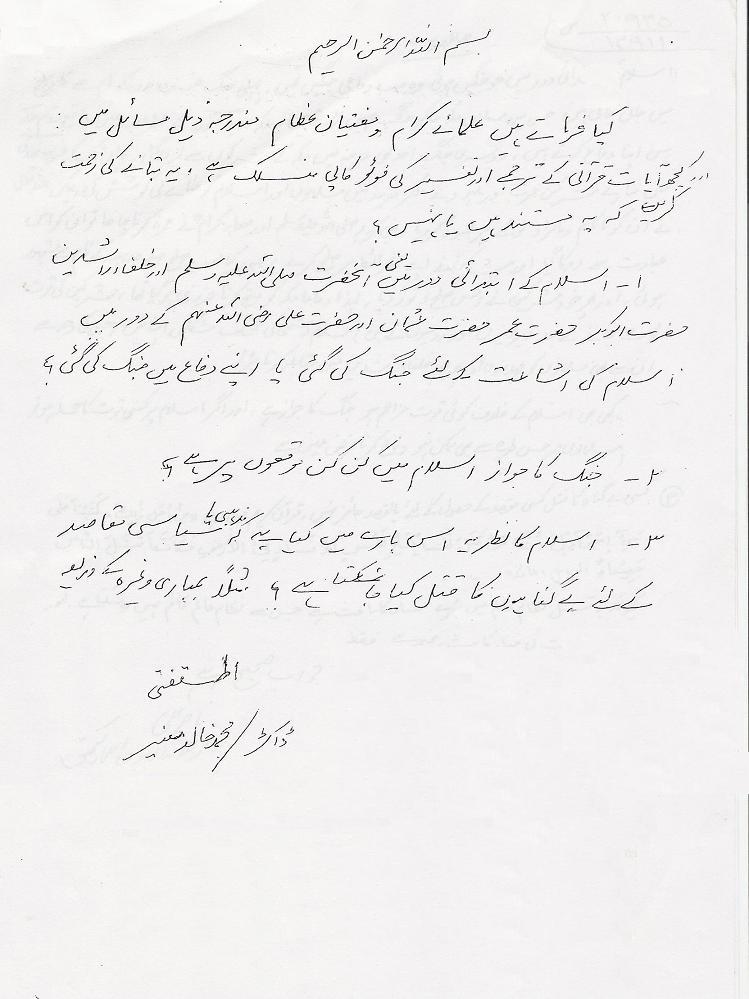 بسم اللہ الرحمٰن الرحیم
کیا فرماتے ہیں علمائے کرام و مفتیان عظام مندرجہ ذیل مسائل میں :
اور کچھ آیات قرآنی کے ترجمے اور تفسیر کی فوٹو کاپی منسلک ہے ۔ یہ بتانے کی زحمت
کریں کہ یہ مستند ہیں یا نہیں ؟
۱۔ اسلام کے ابتدائی دور میں یعنی آنحضرت صلی اللہ علیہ وسلم اور خلفاء راشدین
حضرت ابوبکر حضرت عمر حضرت عثمان اور حضرت علی رضی اللہ عنہم کے دور میں
اسلام کی اشاعت کے لئے جنگ کی گئی یا اپنے دفاع میں جنگ کی گئی ؟
۲۔ جنگ کا جواز اسلام میں کن کن موقعوں پر ہے ؟
۳۔ اسلام کا نظریہ اس بارے میں کیا ہے کہ مذہبی یا سیاسی مقاصد
کے لئے بے گناہوں کا قتل کیا جا سکتا ہے ؟ مثلاً بمباری وغیرہ کے ذریعے
المستفتی
ڈاکٹر / محمد خالد منیر